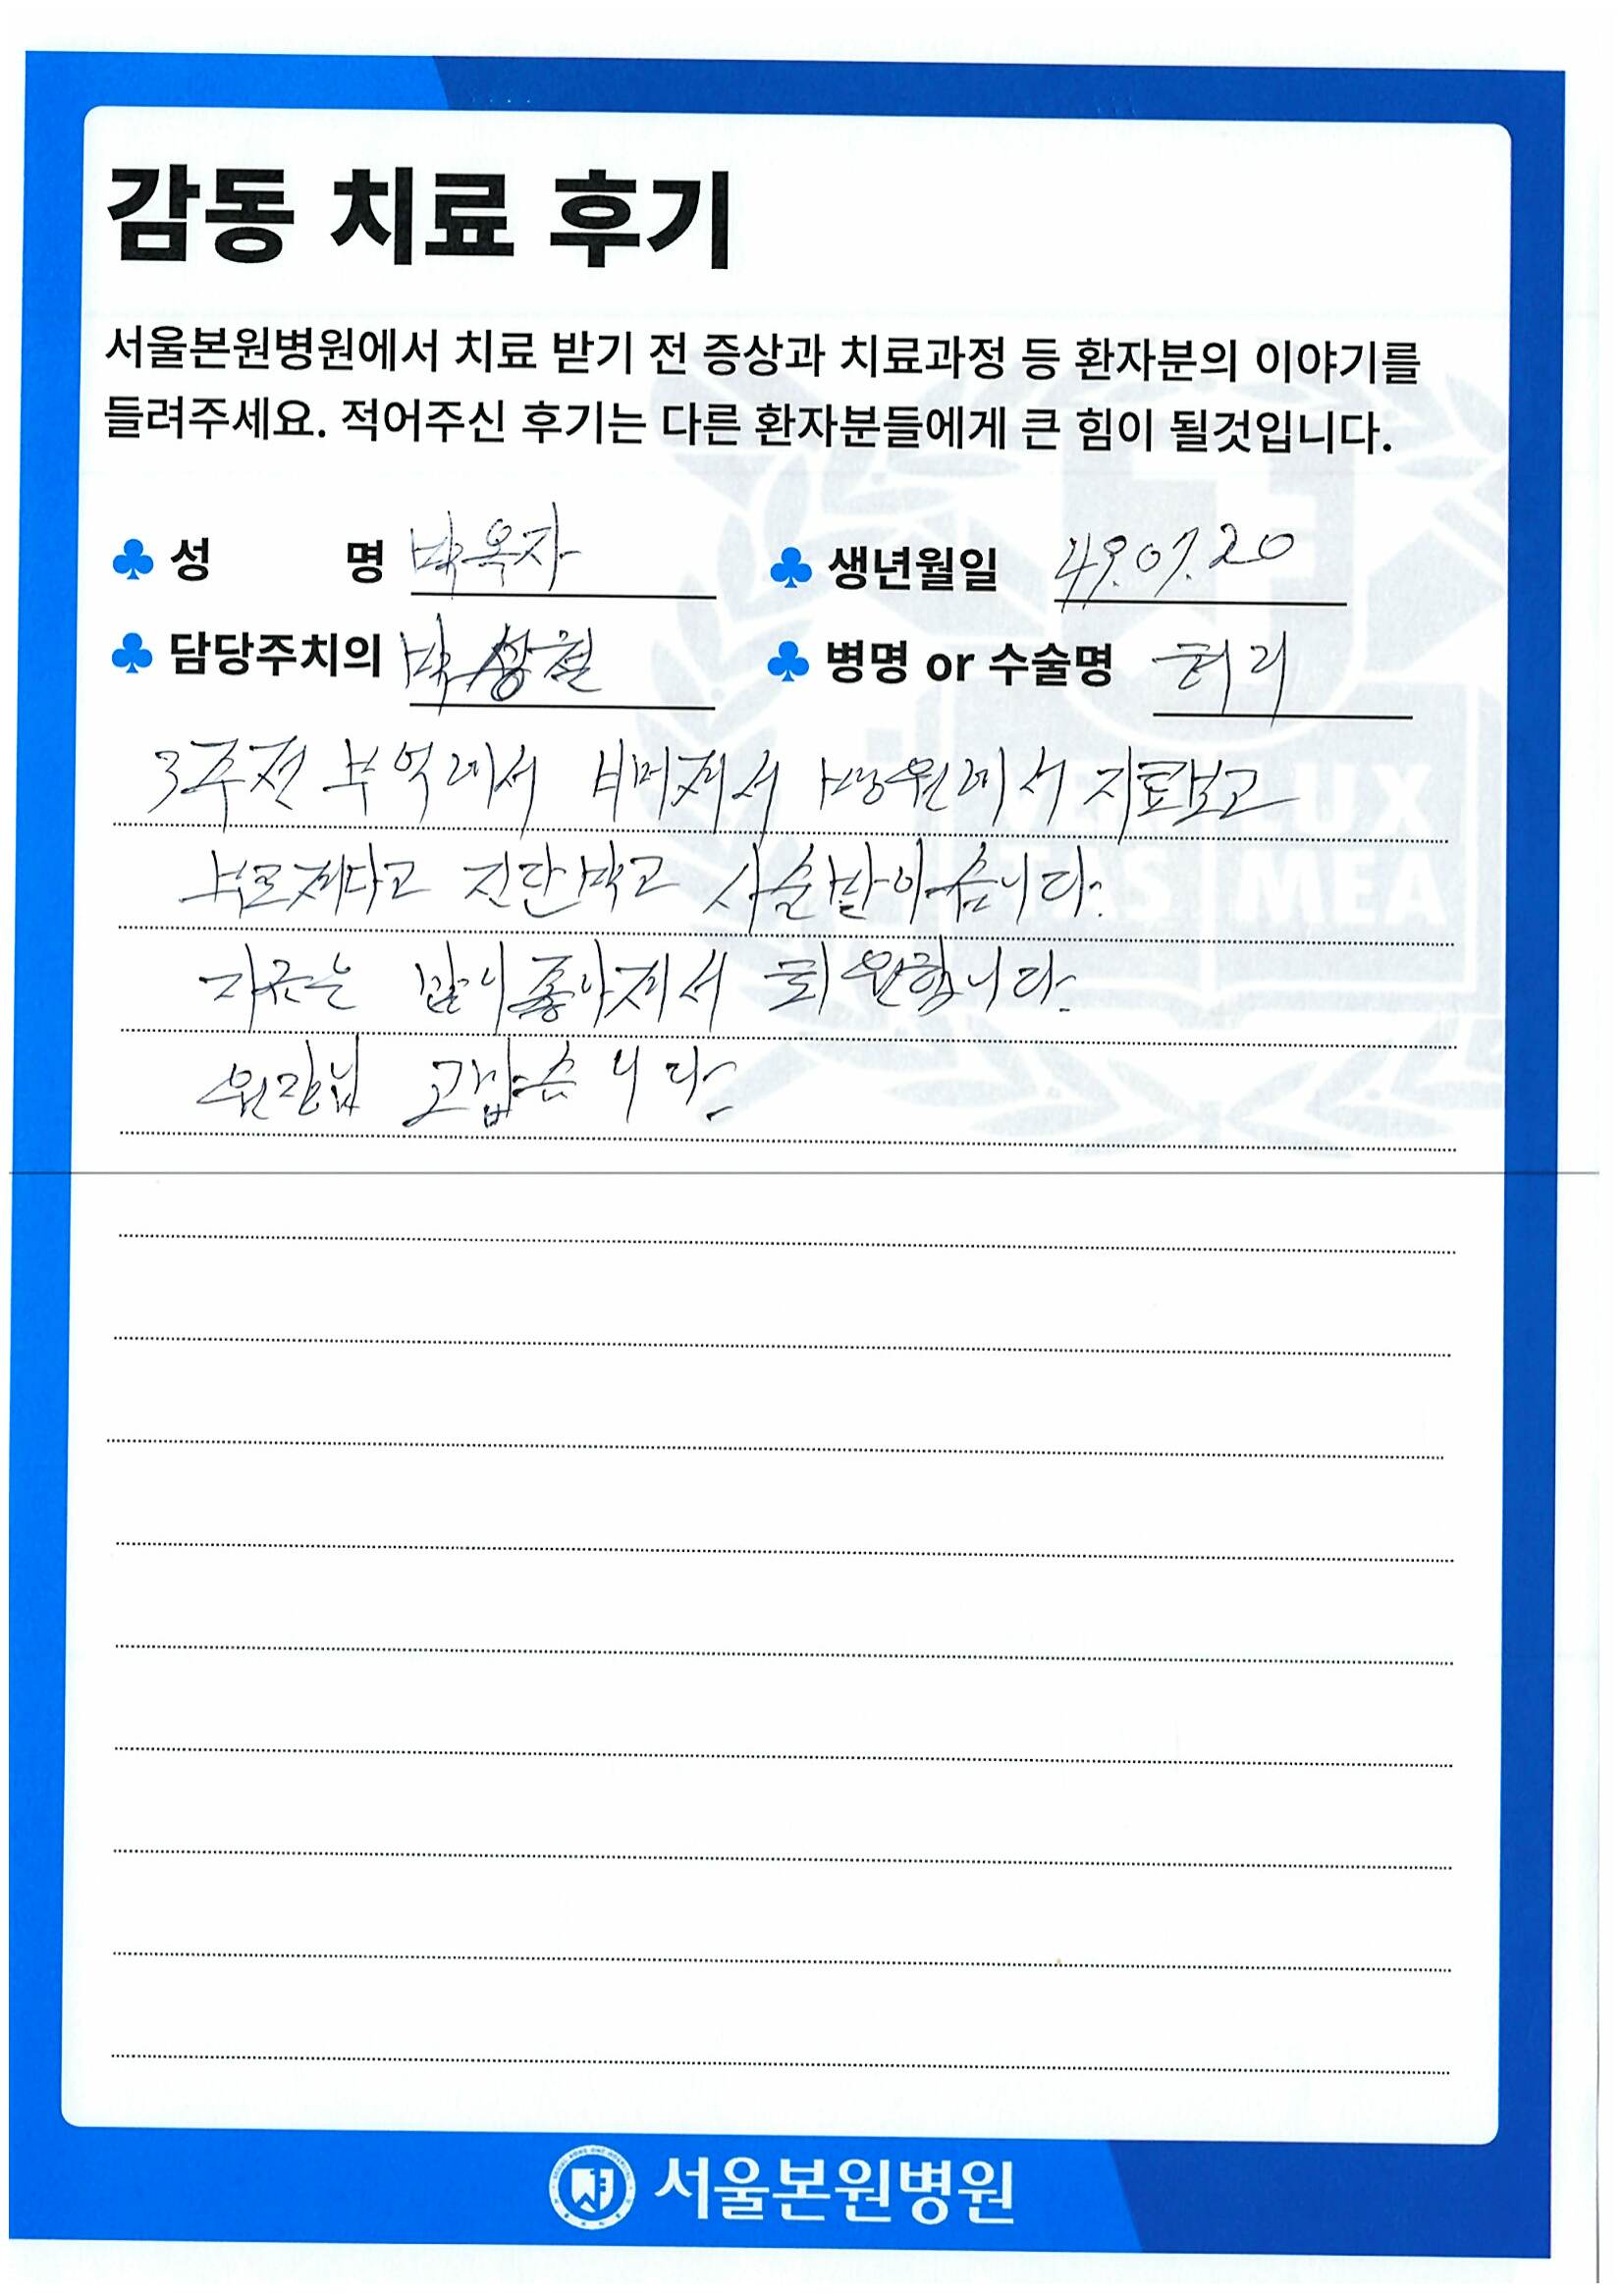 감동 치료 후기
서울본원병원에서 치료 받기 전 증상과 치료과정 등 환자분의 이야기를
들려주세요. 적어주신 후기는 다른 환자분들에게 큰 힘이 될것입니다.
성 명 박옥자 생년월일 49.07.20
담당주치의 박상철 병명 or 수술명 허리
3주전 부엌에서 너머져서 병원에서 지료보고
부르저다고 진단받고 시술받아습니다.
지금은 많이좋아저서 퇴원합니다.
원장님 고맙습니다.
VERI LUX
TAS MEA
서울본원병원